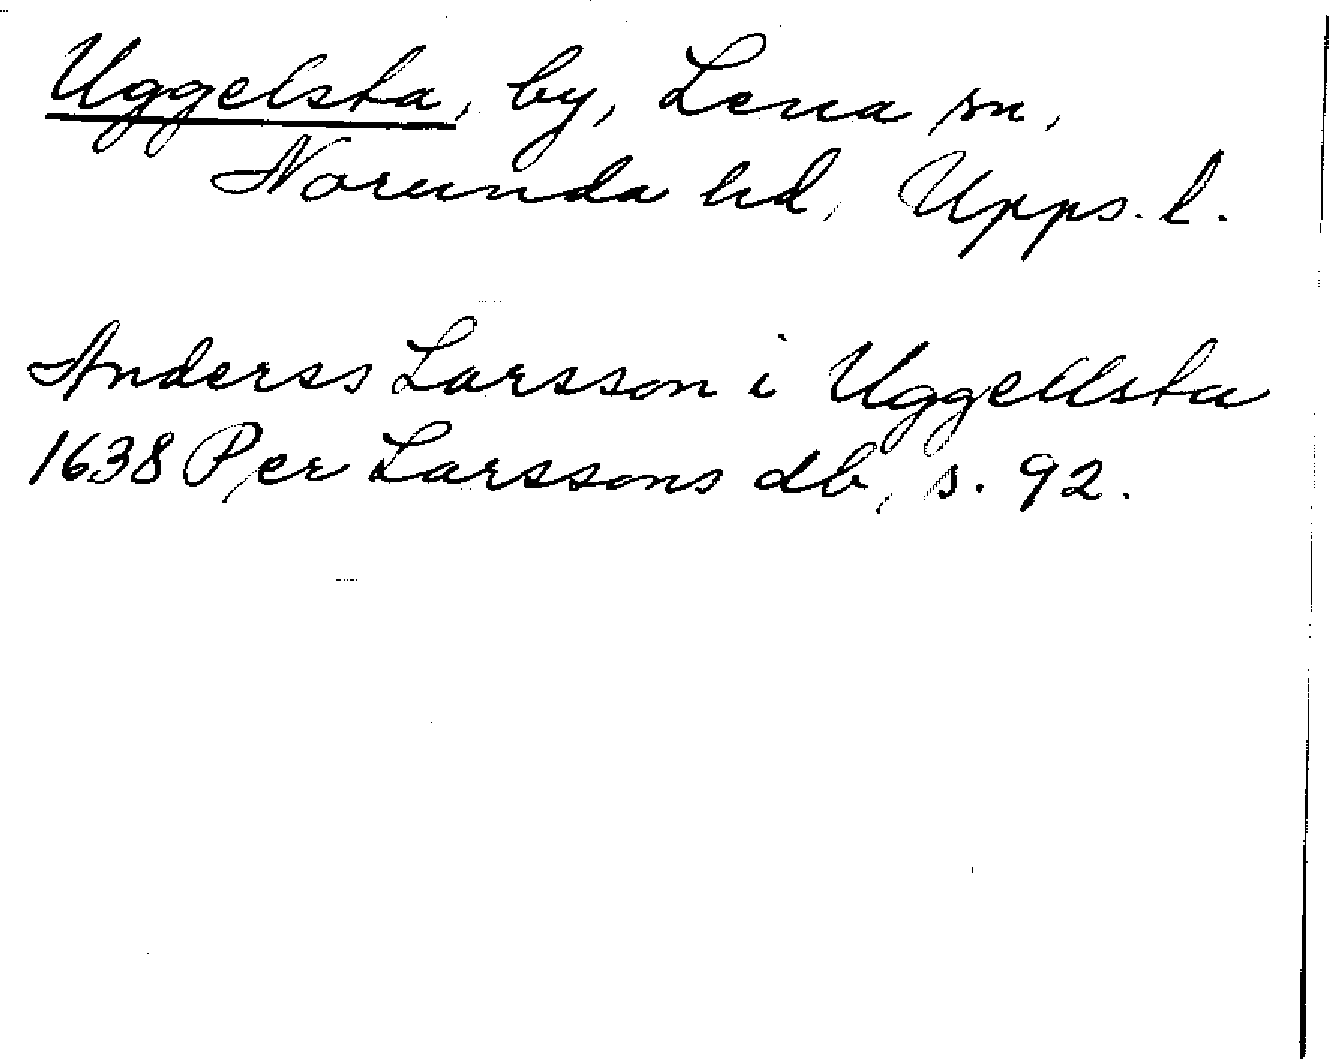 Uggelsta, by, Lena sn,
Norunda hd, Upps. l.
Anderss Larsson i Uggellsta
1638 Per Larssons db, s. 92.